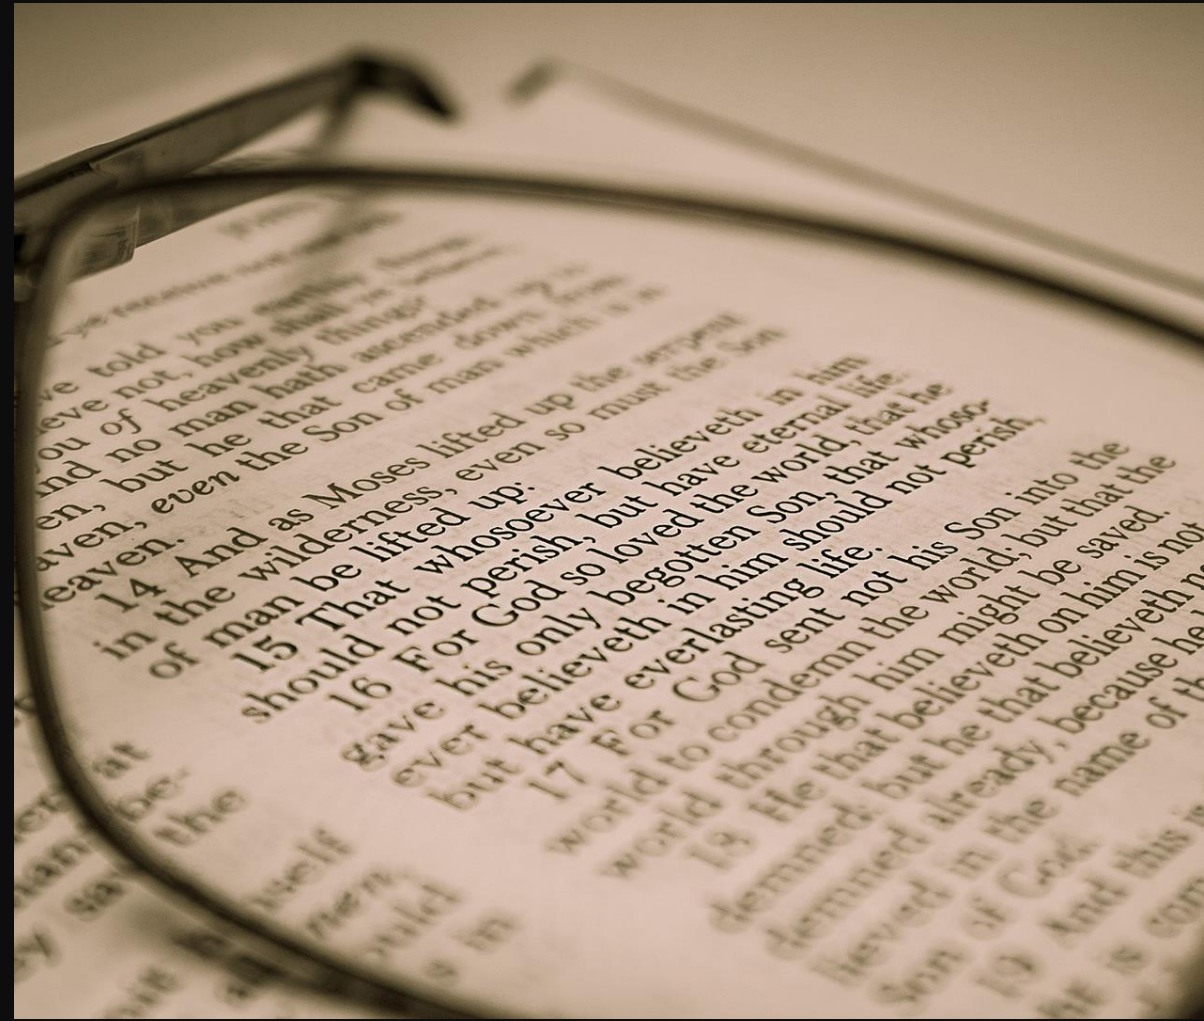 told you
not, how shall ye believe
you of heavenly things
no man hath ascended up
but he that came down from
even the Son of man which is
14 And as Moses lifted up the serpent
in the wilderness, even so must the Son
of man be lifted up:
15 That whosoever believeth in him
should not perish, but have eternal life.
16 For God so loved the world, that he
gave his only begotten Son, that whoso-
ever believeth in him should not perish,
but have everlasting life.
17 For God sent not his Son into the
world to condemn the world; but that the
world through him might be saved.
18 He that believeth on him is not
demned: but he that believeth
demned already, because he
lieved in the name of the
Son of God.
19 And this
is
at
the
in